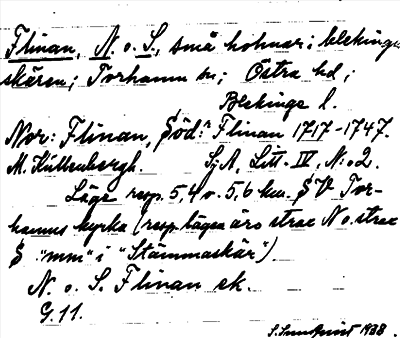 Flinan, N. o. S., små holmar i blekinge
skären; Torhamn sn; Östra hd;
Blekinge l.
Nor: Flinan, Söd:n Flinan 1717-1747.
M. Hultenbergh. SjA, Litt. IV, N:o 2.
Läge resp. 5,4 o. 5,6 km. SV Tor-
hamns kyrka (resp. lägen äro strax N o. strax
S "mm" i "Stämmaskär").
N. o. S. Flinan ek.
G. 11.
1938.